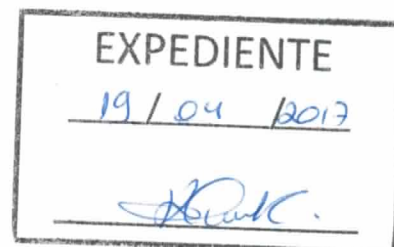 EXPEDIENTE
19 / 04 /2017